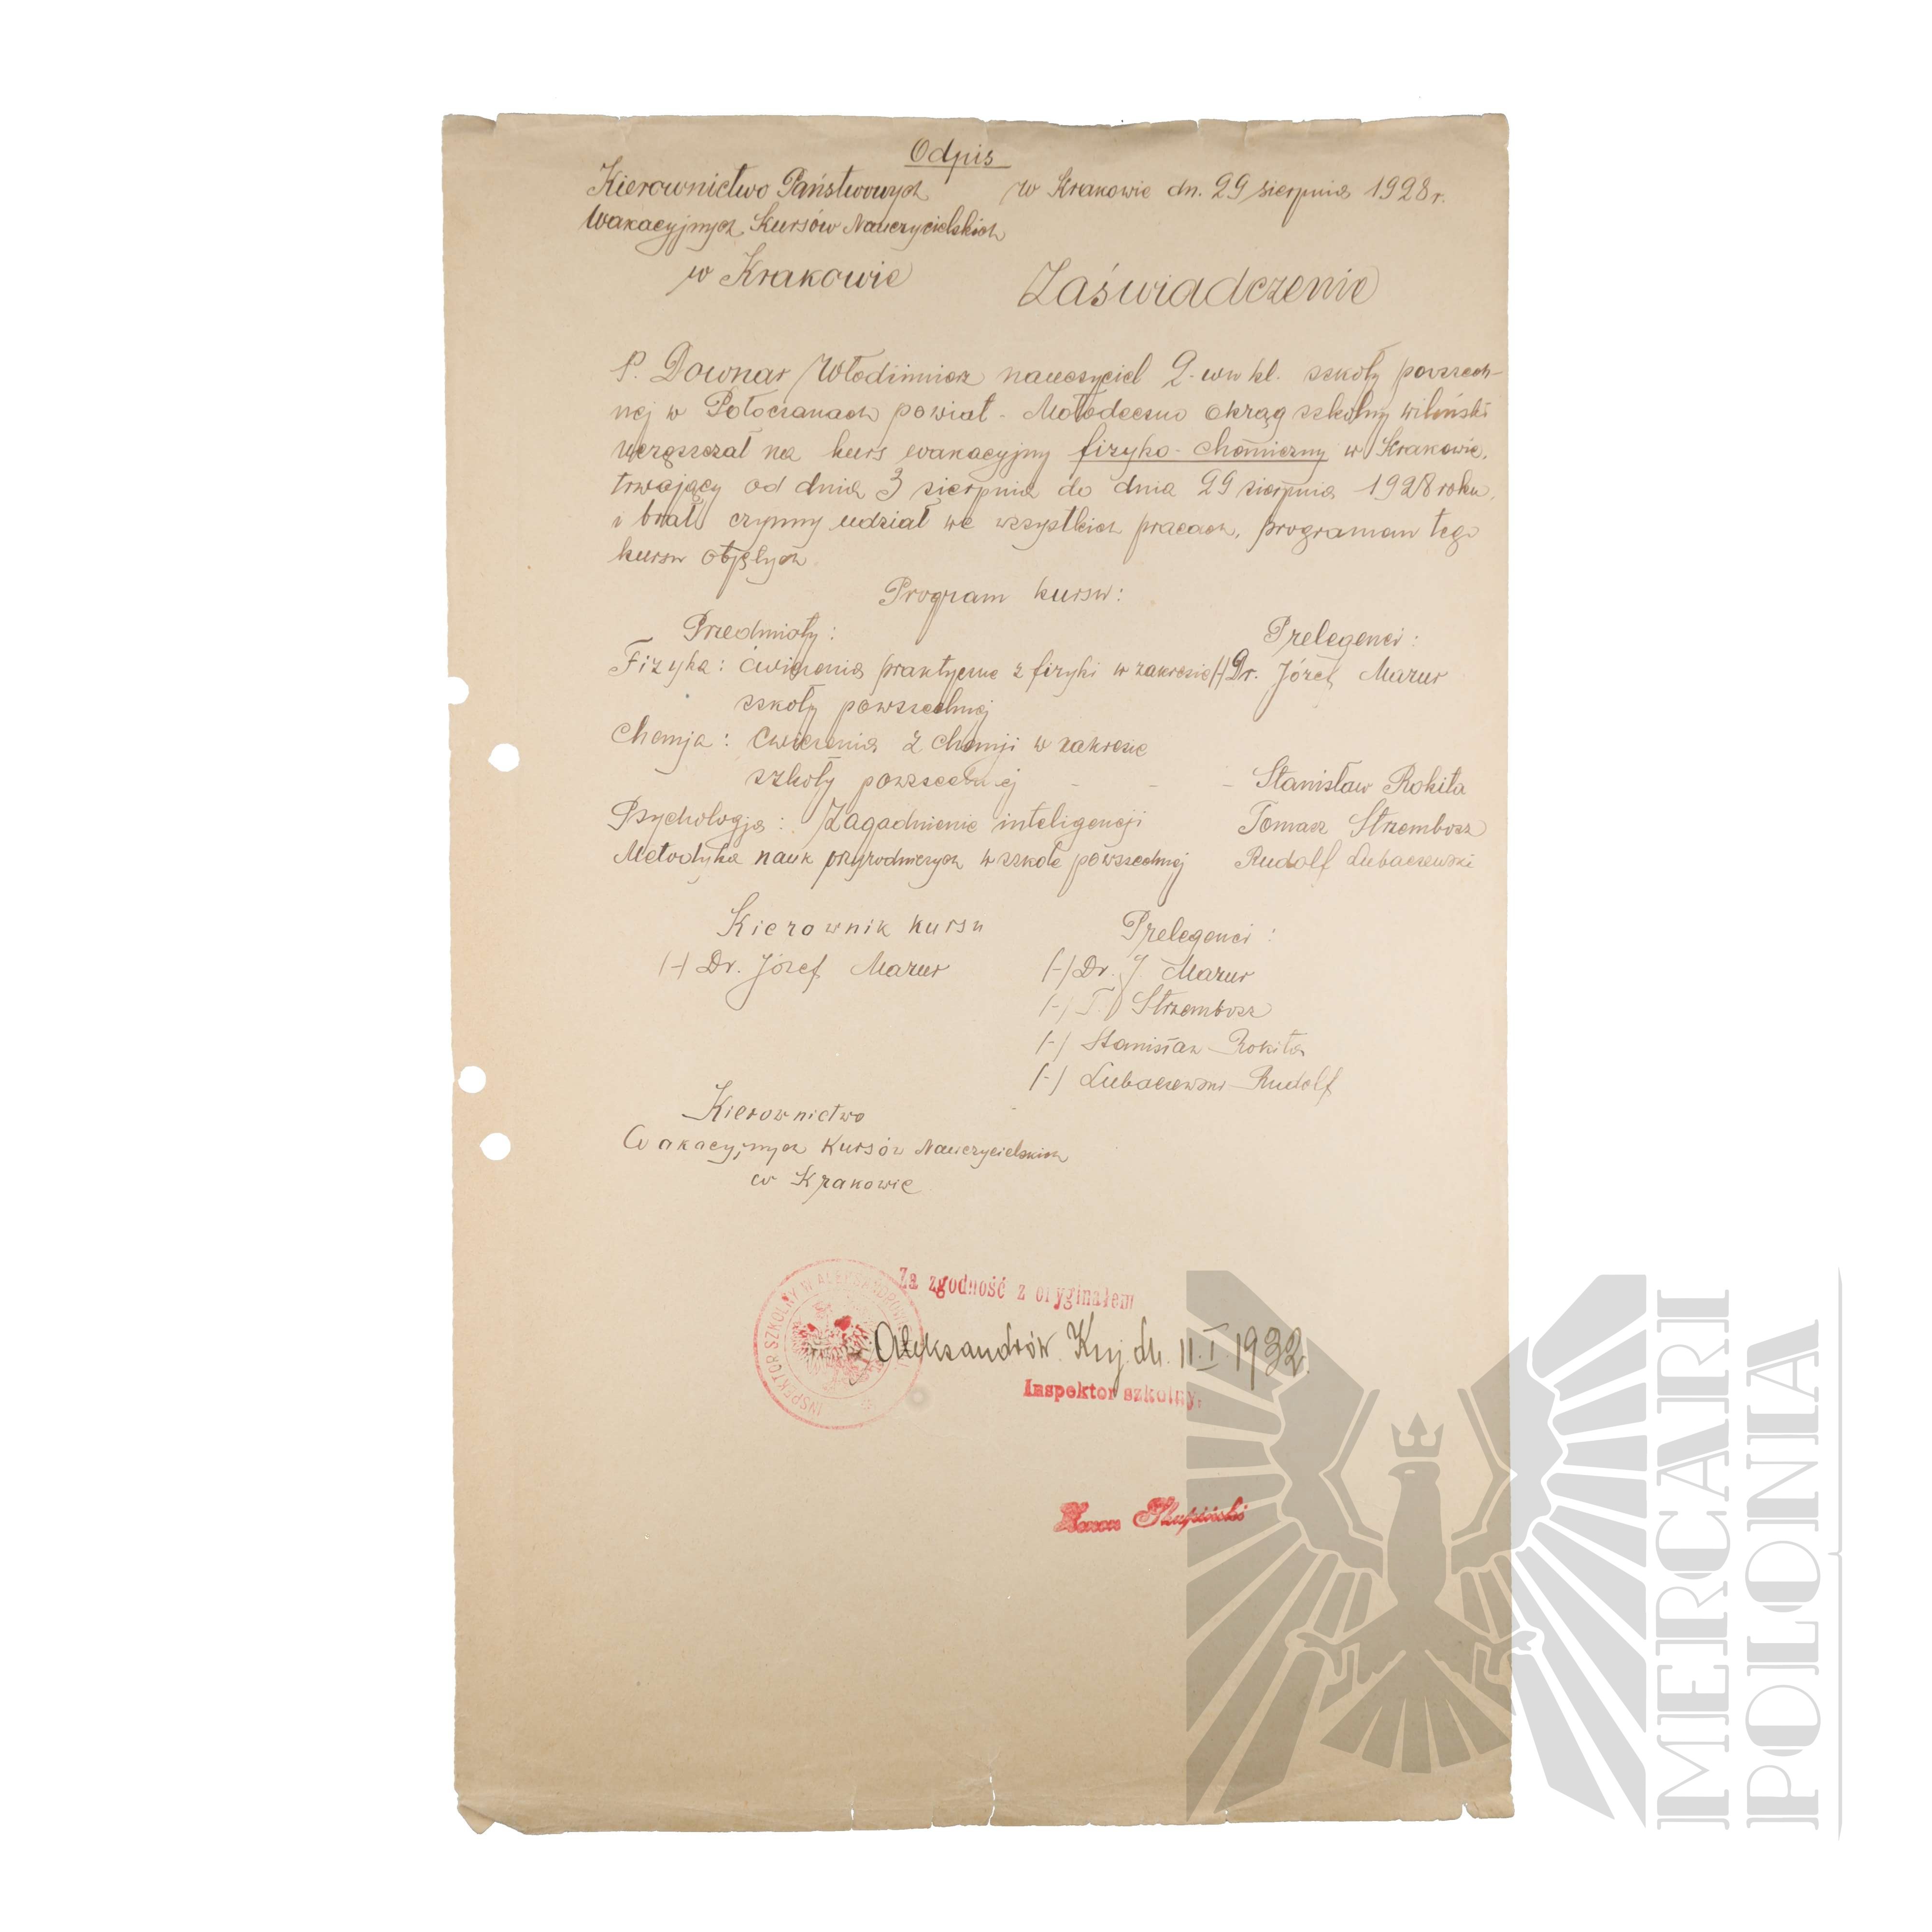 Odpis
Kierownictwo Państwowych w Krakowie dn. 29 sierpnia 1928 r.
Wakacyjnych Kursów Nauczycielskich
w Krakowie
Zaświadczenie
P. Downar Włodzimierz nauczyciel 2-wu kl. szkoły powszech-
nej w Połoczanach powiat - Mołodeczno okrąg szkolny wileński
uczęszczał na kurs wakacyjny fizyko-chemiczny w Krakowie,
trwający od dnia 3 sierpnia do dnia 29 sierpnia 1928 roku,
i brał czynny udział we wszystkich pracach, programem tego
kursu objętych
Program kursu:
Przedmioty: Prelegenci:
Fizyka: ćwiczenia praktyczne z fizyki w zakresie (-) Dr. Józef Mazur
szkoły powszechnej
Chemja: ćwiczenia z chemji w zakresie
szkoły powszechnej - - - Stanisław Rokita
Psychologja: Zagadnienie inteligencji Tomasz Strzembosz
Metodyka nauk przyrodniczych w szkole powszechnej Rudolf Lubaczewski
Kierownik kursu Prelegenci:
(-) Dr. Józef Mazur (-) Dr. J. Mazur
(-) T. Strzembosz
(-) Stanisław Rokita
(-) Lubaczewski Rudolf
Kierownictwo
Wakacyjnych Kursów Nauczycielskich
w Krakowie
INSPEKTOR SZKOLNY W ALEKSANDROWIE
Za zgodność z oryginałem
Aleksandrów Kuj. dn. 11.I.1932.
Inspektor szkolny.
Zenon Skupiński
MERCARI
POLONIA